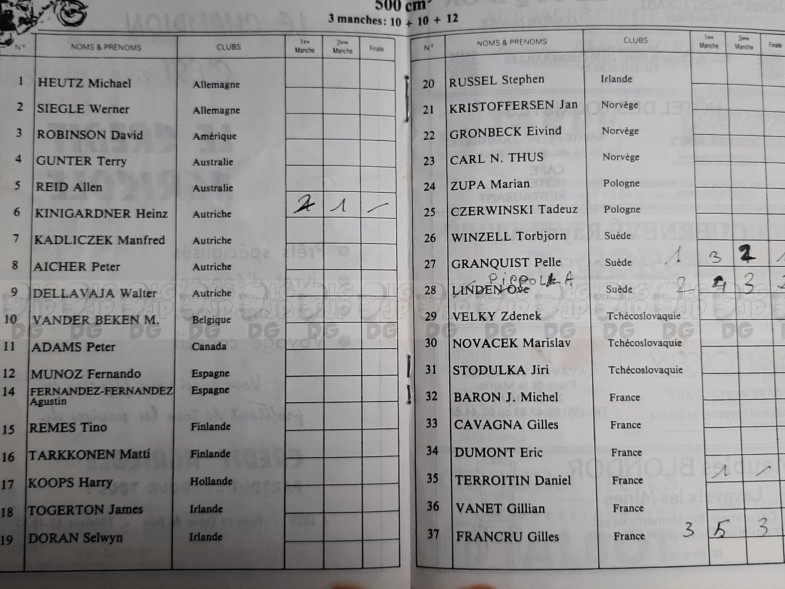 500 cm³
3 manches: 10 + 10 + 12
N° NOMS & PRÉNOMS CLUBS 1ère Manche 2ème Manche Finale
1 HEUTZ Michael Allemagne
2 SIEGLE Werner Allemagne
3 ROBINSON David Amérique
4 GUNTER Terry Australie
5 REID Allen Australie
6 KINIGARDNER Heinz Autriche 2 1 –
7 KADLICZEK Manfred Autriche
8 AICHER Peter Autriche
9 DELLAVAJA Walter Autriche
10 VANDER BEKEN M. Belgique
11 ADAMS Peter Canada
12 MUNOZ Fernando Espagne
14 FERNANDEZ-FERNANDEZ Agustin Espagne
15 REMES Tino Finlande
16 TARKKONEN Matti Finlande
17 KOOPS Harry Hollande
18 TOGERTON James Irlande
19 DORAN Selwyn Irlande
N° NOMS & PRÉNOMS CLUBS 1ère Manche 2ème Manche Finale
20 RUSSEL Stephen Irlande
21 KRISTOFFERSEN Jan Norvège
22 GRONBECK Eivind Norvège
23 CARL N. THUS Norvège
24 ZUPA Marian Pologne
25 CZERWINSKI Tadeuz Pologne
26 WINZELL Torbjorn Suède
27 GRANQUIST Pelle Suède 1 3 2
PIPPOLA
28 LINDEN Ove Suède 2 4 3
29 VELKY Zdenek Tchécoslovaquie
30 NOVACEK Marislav Tchécoslovaquie
31 STODULKA Jiri Tchécoslovaquie
32 BARON J. Michel France
33 CAVAGNA Gilles France
34 DUMONT Eric France
35 TERROITIN Daniel France 1 –
36 VANET Gillian France
37 FRANCRU Gilles France 3 5 3